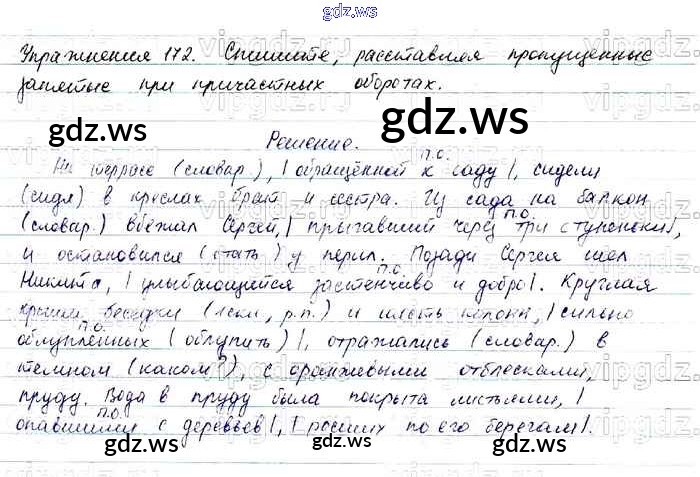 gdz.ws
Упражнения 172. Спишите, расставляя пропущенные
запятые при причастных оборотах.
Решение.
На террасе (словар.), | обращённой к саду |, сидели
п.о.
(сидя) в креслах брат и сестра. Из сада на балкон
(словар.) вбежал Сергей, | прыгавший через три ступеньки |,
п.о.
и остановился (стать) у перил. Позади Сергея шел
Никита, | улыбающейся застенчиво и добро |. Круглая
п.о.
крыши беседки (1скл., р.п.) и шесть колонн, | сильно
облупленных (облупить) |, отражались (словар.) в
п.о.
темном (каком?), с оранжевыми отблесками,
пруду. Вода в пруду была покрыта листьями, |
опавшими с деревьев |, | росших по его берегам |.
п.о.
gdz.ws
gdz.ws
gdz.ws
gdz.ws
gdz.ws
gdz.ws
gdz.ws
gdz.ws